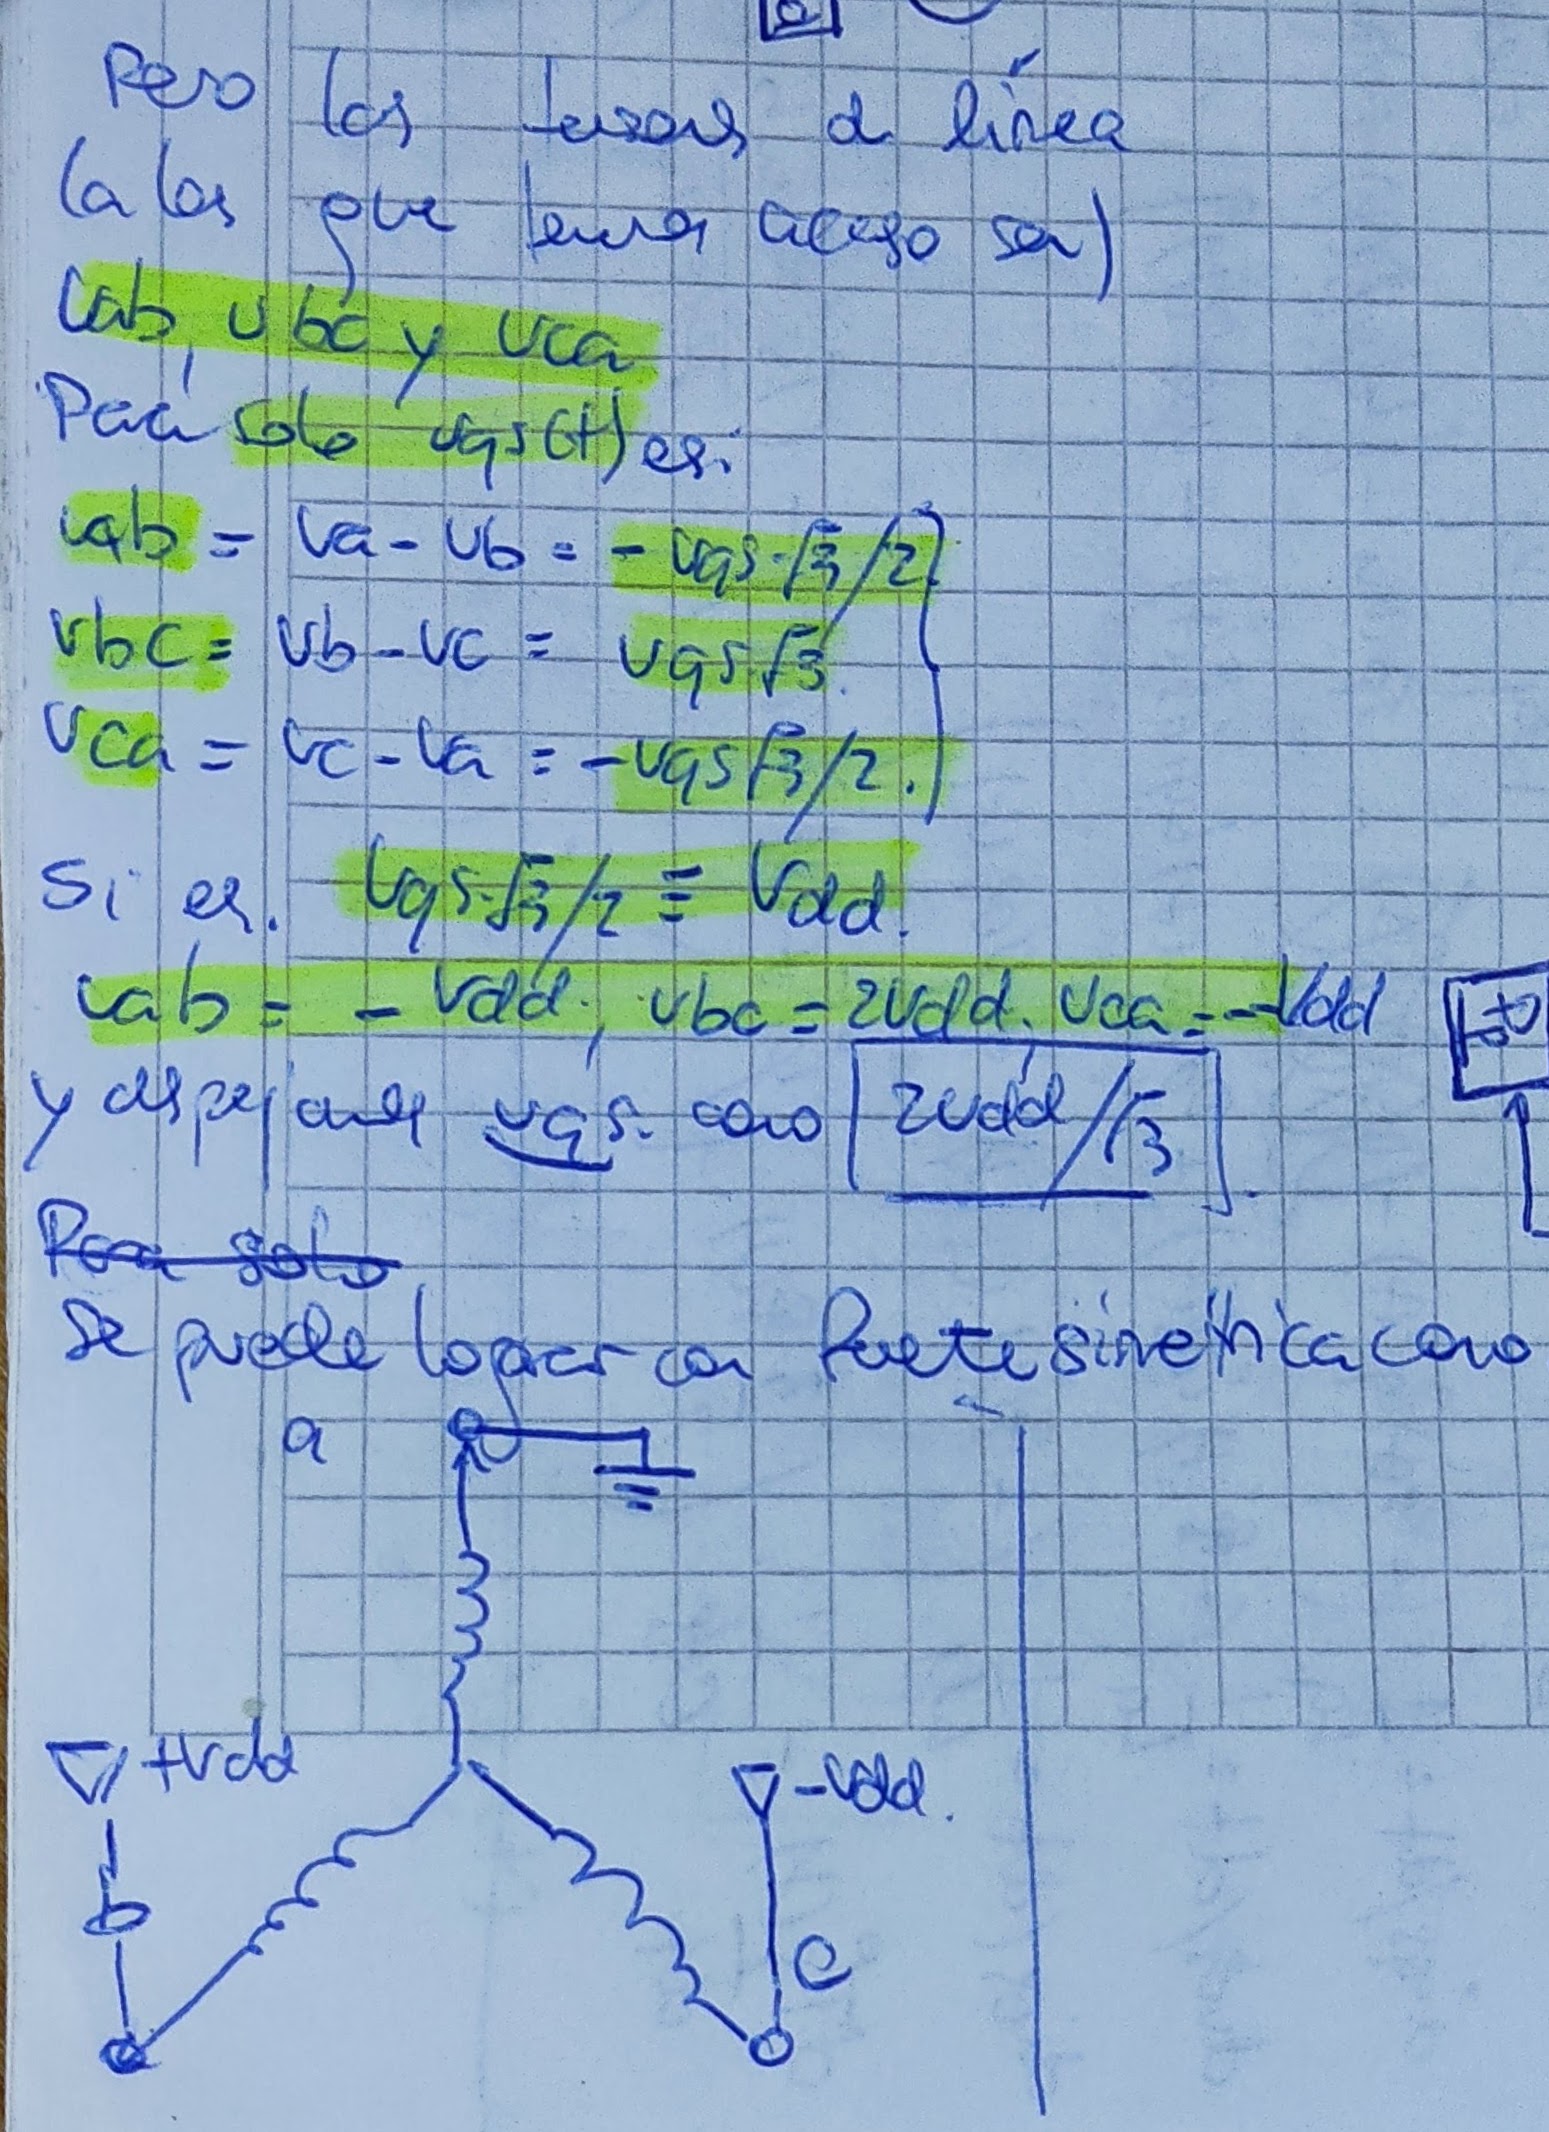 a
Pero las tensones d línea
(a las que tenemos acceso son)
Vab, vbc y vca
Para solo vqs(t) es:
vab = va - vb = - vqs·√3/2
vbc = vb - vc = vqs√3.
vca = vc - va = - vqs√3/2.
Si es. vqs·√3/2 ≡ Vdd.
vab = - Vdd; vbc = 2Vdd. vca = - Vdd
y despejamos vqs. como 2Vdd/√3.
Para solo
Se puede lograr con Fuente simétrica como
a
+Vdd
-Vdd.
b
c